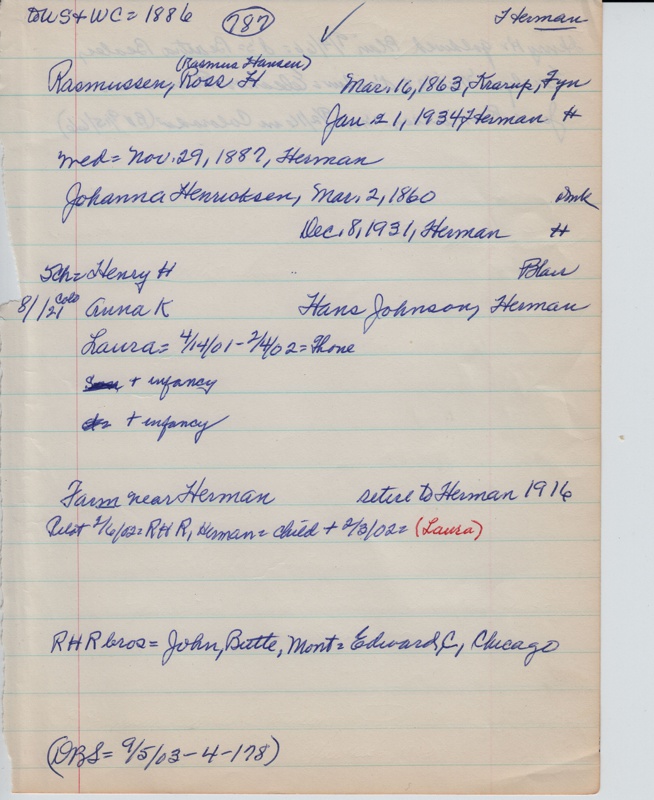 to US + WC = 1886 787 Herman
(Rasmus Hansen)
Rasmussen, Ross H Mar. 16, 1863, Krarup, Fyn
Jan 21, 1934, Herman H
med = Nov. 29, 1887, Herman
Johanna Henricksen, Mar. 2, 1860 Dmk
Dec. 8, 1931, Herman H
5ch = Henry H Blair
8/1/21 Colo Anna K Hans Johnson, Herman
Laura = 4/14/01 - 2/4/02 = Phone
+ infancy
+ infancy
Farm near Herman retire to Herman 1916
Pilot 2/6/02 = RHR, Herman = child + 2/3/02 = (Laura)
RHR bros = John, Butte, Mont = Edward C, Chicago
(DBS = 9/5/03 - 4 - 178)